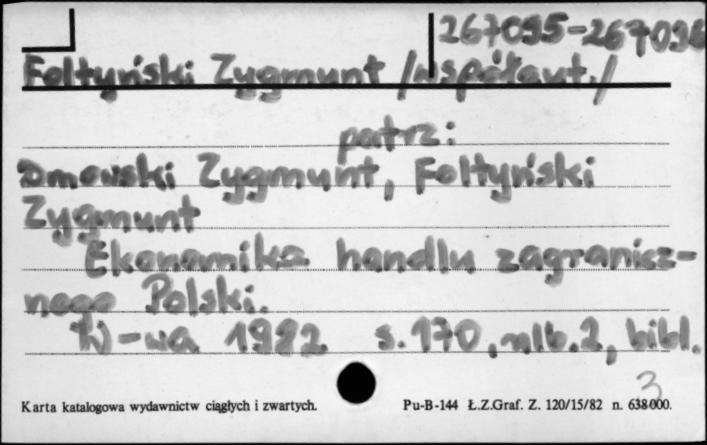 267095-267096
Foltyński Zygmunt /współaut./
patrz:
Dmowski Zygmunt, Foltyński
Zygmunt
Ekonomika handlu zagranicz-
nego Polski.
W-wa 1982 s. 170, nlb. 2, bibl.
3
Karta katalogowa wydawnictw ciągłych i zwartych. Pu-B-144 Ł.Z.Graf. Z. 120/15/82 n. 638000.